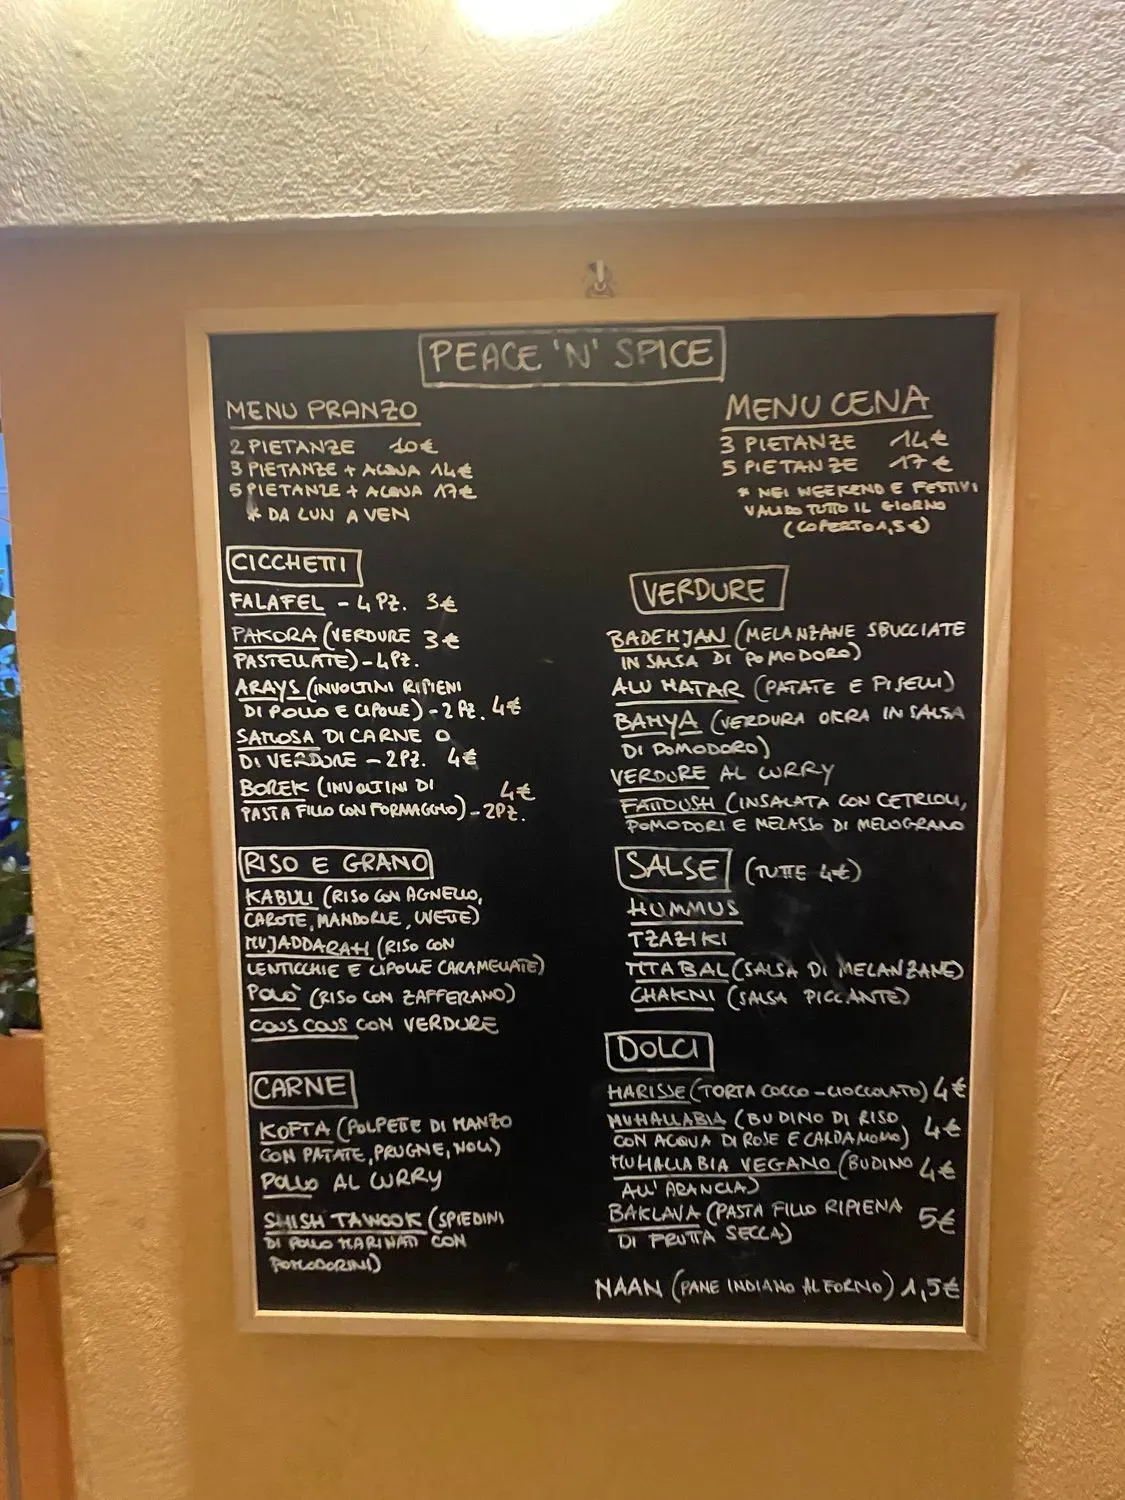 PEACE 'N' SPICE
MENU PRANZO
2 PIETANZE 10€
3 PIETANZE + ACQUA 14€
5 PIETANZE + ACQUA 17€
* DA LUN A VEN
CICCHETTI
FALAFEL - 4 PZ. 3€
PAKORA (VERDURE 3€
PASTELLATE) - 4 PZ.
ARAYS (INVOLTINI RIPIENI
DI POLLO E CIPOLLE) - 2 PZ. 4€
SAMOSA DI CARNE O
DI VERDURE - 2PZ. 4€
BOREK (INVOLTINI DI 4€
PASTA FILLO CON FORMAGGIO) - 2PZ.
RISO E GRANO
KABULI (RISO CON AGNELLO,
CAROTE, MANDORLE, UVETTE)
MUJADDARAH (RISO CON
LENTICCHIE E CIPOLLE CARAMELLATE)
POLO' (RISO CON ZAFFERANO)
COUS COUS CON VERDURE
CARNE
KOFTA (POLPETTE DI MANZO
CON PATATE, PRUGNE, NOCI)
POLLO AL CURRY
SHISH TAWOOK (SPIEDINI
DI POLLO MARINATI CON
POMODORINI)
MENU CENA
3 PIETANZE 14€
5 PIETANZE 17€
* NEI WEEKEND E FESTIVI
VALIDO TUTTO IL GIORNO
(COPERTO 1,5€)
VERDURE
BADEMJAN (MELANZANE SBUCCIATE
IN SALSA DI POMODORO)
ALU MATAR (PATATE E PISELLI)
BAMYA (VERDURA OKRA IN SALSA
DI POMODORO)
VERDURE AL CURRY
FATTOUSH (INSALATA CON CETRIOLI,
POMODORI E MELASSO DI MELOGRANO
SALSE (TUTTE 4€)
HUMMUS
TZAZIKI
MTABAL (SALSA DI MELANZANE)
CHAKNI (SALSA PICCANTE)
DOLCI
HARISSE (TORTA COCCO-CIOCCOLATO) 4€
MUHALLABIA (BUDINO DI RISO
CON ACQUA DI ROSE E CARDAMOMO) 4€
MUHALLABIA VEGANO (BUDINO 4€
ALL' ARANCIA)
BAKLAVA (PASTA FILLO RIPIENA 5€
DI FRUTTA SECCA)
NAAN (PANE INDIANO AL FORNO) 1,5€